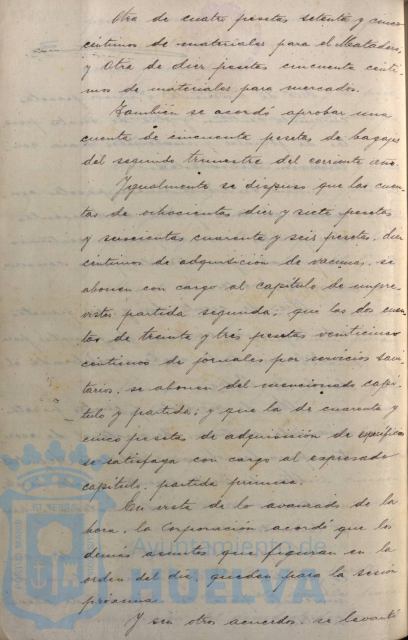 Otra de cuatro pesetas setenta y cinco
céntimos de materiales para el Matadero,
y Otra de diez pesetas cincuenta cénti-
mos de materiales para mercados.
También se acordó aprobar una
cuenta de cincuenta pesetas de bagajes
del segundo trimestre del corriente año.
Igualmente se dispuso que las cuen-
tas de ochocientas diez y siete pesetas
y seiscientas cuarenta y seis pesetas, diez
céntimos de adquisición de vacunas, se
abonen con cargo al capítulo de impre-
vistos partida segunda; que las dos cuen-
tas de treinta y tres pesetas veinticinco
céntimos de jornales por servicios sani-
tarios, se abonen del mencionado capí-
tulo y partida; y que la de cuarenta y
cinco pesetas de adquisición de específicos
se satisfaga con cargo al expresado
capítulo, partida primera.
En vista de lo avanzado de la
hora, la Corporación acordó que los
demás asuntos que figuran en la
orden del día, queden para la sesión
próxima.
Y sin otros acuerdos, se levantó
Ayuntamiento de
HUELVA